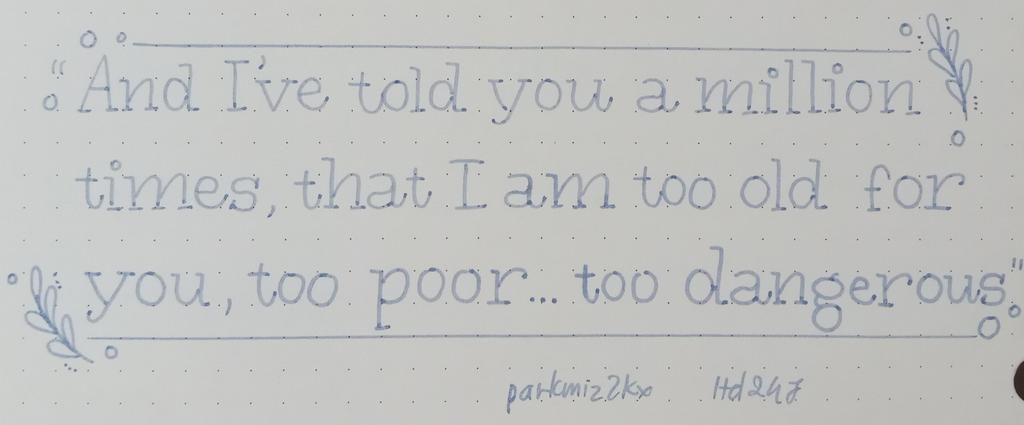 “And I've told you a million
times, that I am too old for
you, too poor... too dangerous"
parkmiz2kx